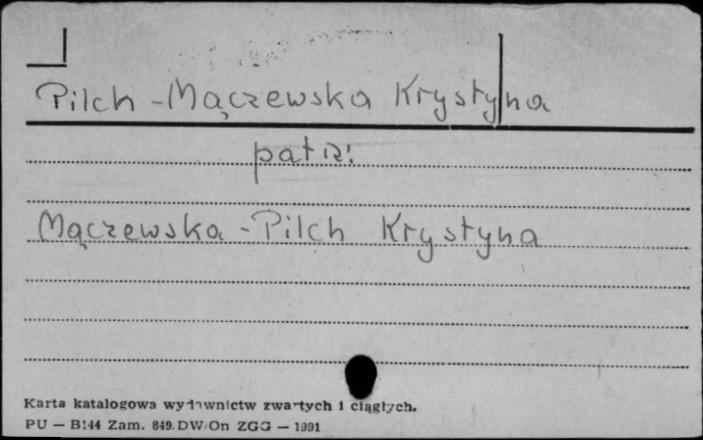 Pilch-Mączewska Krystyna
patrz:
Mączewska-Pilch Krystyna
Karta katalogowa wydawnictw zwartych i ciągłych.
PU — B144 Zam. 849. DW/On ZGG — 1991